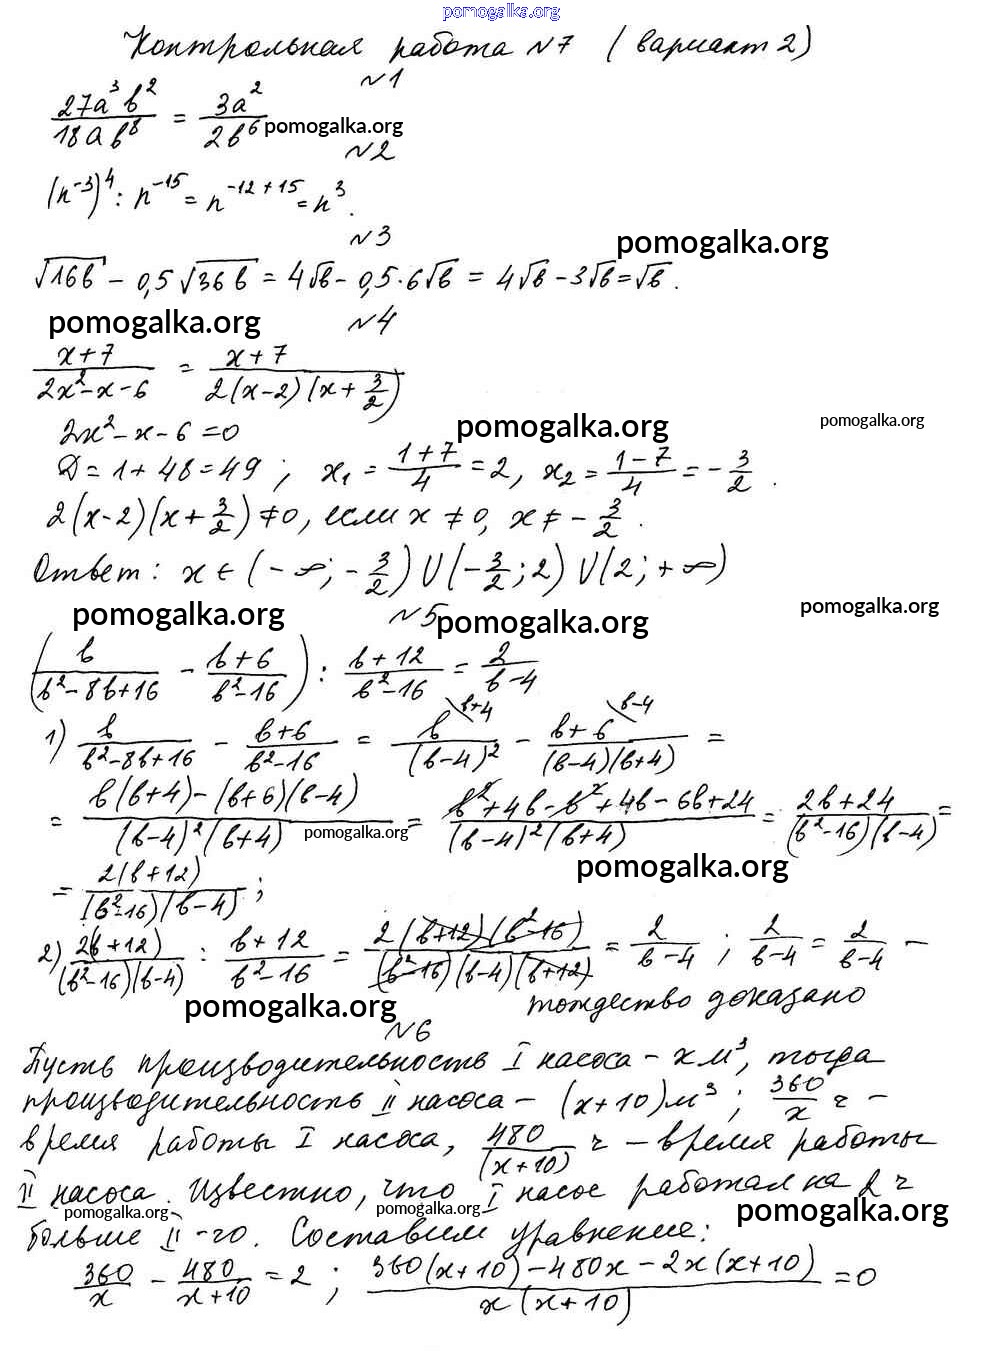 pomogalka.org
Контрольная работа №7 (вариант 2)
№1
27a³b²/18ab⁸ = 3a²/2b⁶ pomogalka.org
№2
(n⁻³)⁴ : n⁻¹⁵ = n⁻¹²⁺¹⁵ = n³.
№3
pomogalka.org
√16b − 0,5√36b = 4√b − 0,5·6√b = 4√b − 3√b = √b.
pomogalka.org №4
(x+7)/(2x²−x−6) = (x+7)/(2(x−2)(x+3/2))
2x²−x−6=0 pomogalka.org pomogalka.org
Д=1+48=49; x₁=(1+7)/4=2, x₂=(1−7)/4=−3/2.
2(x−2)(x+3/2)≠0, если x≠0, x≠−3/2.
Ответ: x∈(−∞;−3/2)∪(−3/2;2)∪(2;+∞)
pomogalka.org №5 pomogalka.org pomogalka.org
(b/(b²−8b+16) − (b+6)/(b²−16)) : (b+12)/(b²−16) = 2/(b−4)
1) b/(b²−8b+16) − (b+6)/(b²−16) = b\b+4/(b−4)² − b+6\b−4/((b−4)(b+4)) =
= (b(b+4)−(b+6)(b−4))/((b−4)²(b+4)) pomogalka.org = (b²+4b−b²+4b−6b+24)/((b−4)²(b+4)) = (2b+24)/((b²−16)(b−4)) =
pomogalka.org
= 2(b+12)/((b²−16)(b−4));
2) 2(b+12)/((b²−16)(b−4)) : (b+12)/(b²−16) = 2(b+12)(b²−16)/((b²−16)(b−4)(b+12)) = 2/(b−4); 2/(b−4) = 2/(b−4) −
тождество доказано
pomogalka.org
№6
Пусть производительность I насоса − x м³, тогда
производительность II насоса − (x+10) м³; 360/x ч −
время работы I насоса, 480/(x+10) ч − время работы
II насоса. Известно, что I насос работал на 2 ч
pomogalka.org pomogalka.org pomogalka.org
больше II-го. Составим уравнение:
360/x − 480/(x+10) = 2; (360(x+10)−480x−2x(x+10))/(x(x+10)) = 0